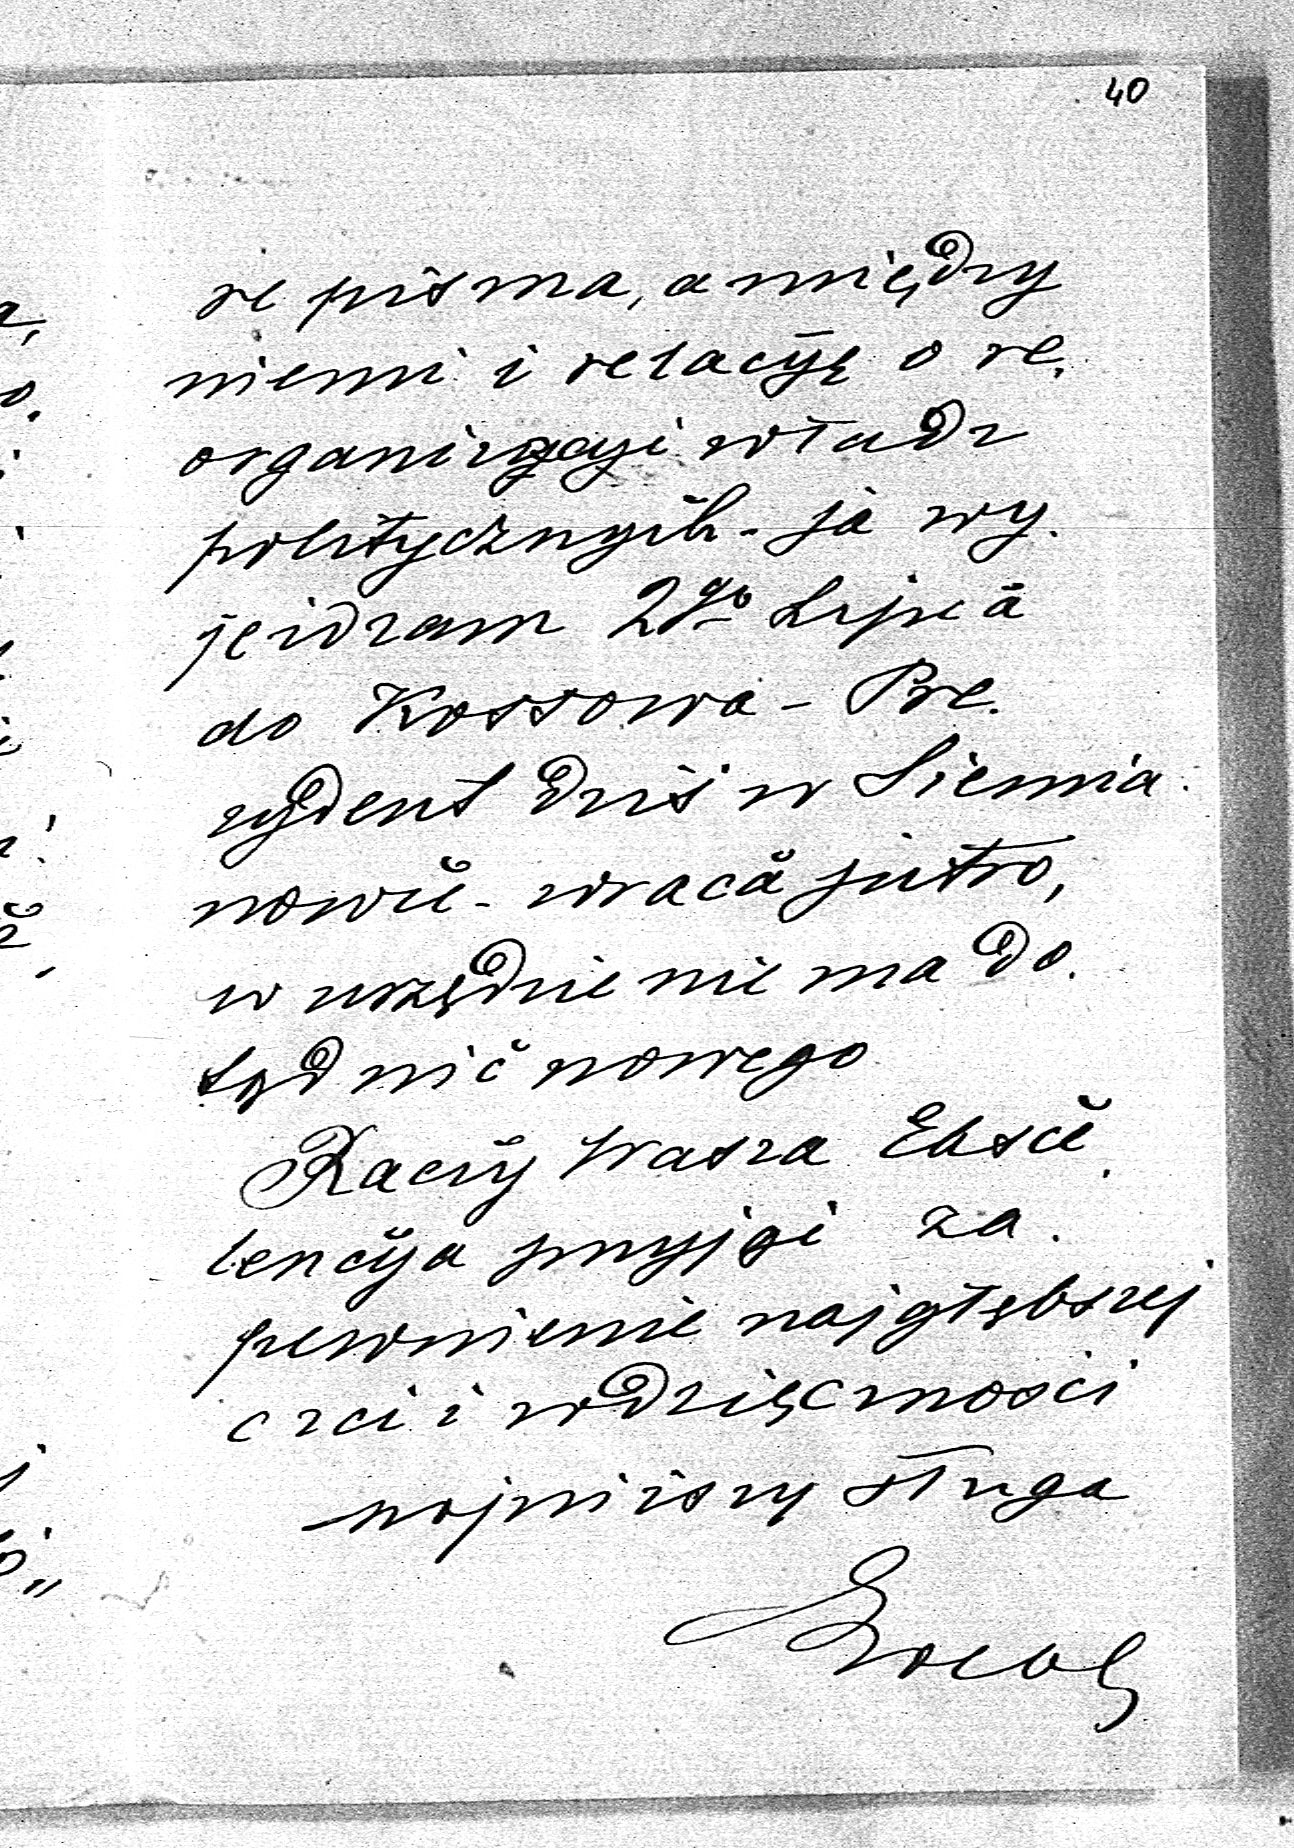 40
re pisma, a między
niemi i relacyę o re.
organizacyi władz
politycznych - ja wy.
jeżdżam 2go Lipca
do Kossowa - Pre.
zydent dziś w Siemia.
nowie - wraca jutro,
w urzędzie nie ma do.
tąd nic nowego
Raczy Wasza Eksce.
lencya przyjąć za.
pewnienie najgłębszej
czci i wdzięczności
najniższy sługa